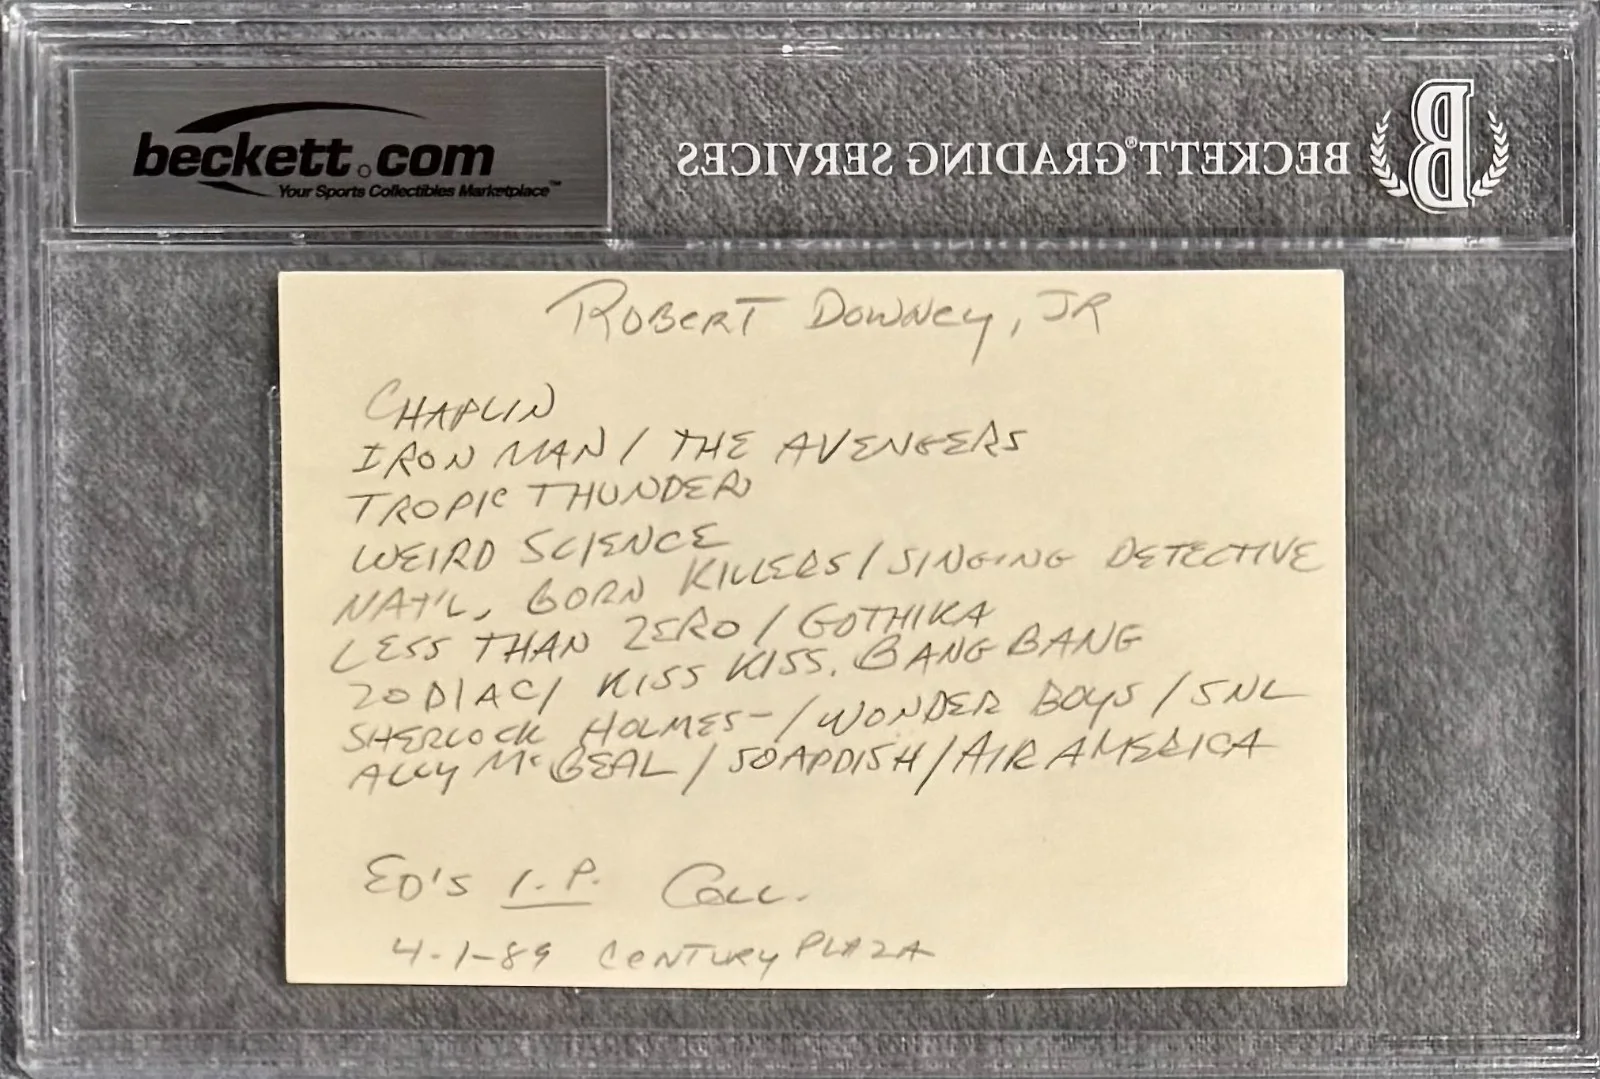 beckett.com
Your Sports Collectibles Marketplace™
BECKETT® GRADING SERVICES
B
ROBERT DOWNEY, JR
CHAPLIN
IRON MAN / THE AVENGERS
TROPIC THUNDER
WEIRD SCIENCE
NAT'L. BORN KILLERS / SINGING DETECTIVE
LESS THAN ZERO / GOTHIKA
ZODIAC / KISS KISS. BANG BANG
SHERLOCK HOLMES- / WONDER BOYS / SNL
ALLY McBEAL / SOAPDISH / AIR AMERICA
ED'S I.P. COLL.
4-1-89 CENTURY PLAZA